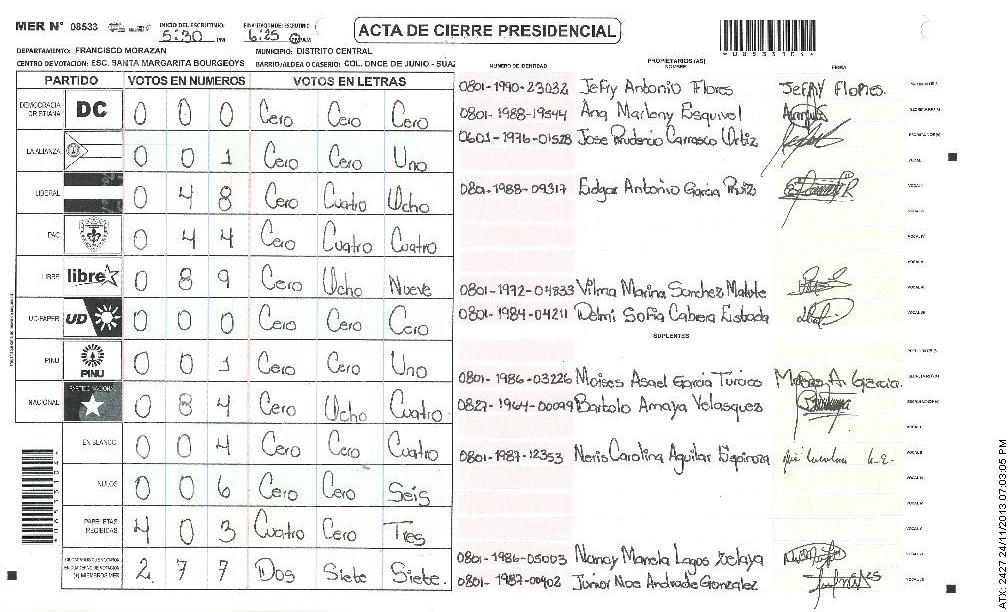 MER N° 08533 INICIO DEL ESCRUTINIO: 5:30 PM FINALIZACION DEL ESCRUTINIO: 6:25 PM AM
ACTA DE CIERRE PRESIDENCIAL
DEPARTAMENTO: FRANCISCO MORAZAN MUNICIPIO: DISTRITO CENTRAL
CENTRO DE VOTACION: ESC. SANTA MARGARITA BOURGEOYS BARRIO/ALDEA O CASERIO: COL. ONCE DE JUNIO - SUA
PARTIDO VOTOS EN NUMEROS VOTOS EN LETRAS
DEMOCRACIA CRISTIANA DC 0 0 0 Cero Cero Cero
LA ALIANZA 0 0 1 Cero Cero Uno
LIBERAL 0 4 8 Cero Cuatro Ocho
PAC 0 4 4 Cero Cuatro Cuatro
LIBRE libre 0 8 9 Cero Ocho Nueve
UD-FAPER UD 0 0 0 Cero Cero Cero
PINU PINU 0 0 1 Cero Cero Uno
NACIONAL PARTIDO NACIONAL 0 8 4 Cero Ocho Cuatro
EN BLANCO 0 0 4 Cero Cero Cuatro
NULOS 0 0 6 Cero Cero Seis
PAPELETAS RECIBIDAS 4 0 3 Cuatro Cero Tres
2 7 7 Dos Siete Siete.
NUMERO DE IDENTIDAD PROPIETARIOS (AS) NOMBRE FIRMA
0801-1990-23032 Jefry Antonio Flores Jefry Flores.
0801-1988-19544 Ana Marleny Esquivel
0601-1976-01528 Jose Prudencio Carrasco Ortiz
0801-1988-09317 Edgar Antonio Garcia Ruiz
0801-1972-04833 Vilma Marina Sanchez Matute
0801-1984-04211 Delmi Sofia Cabera Estrada
SUPLENTES
0801-1986-03226 Moises Asael Garcia Turcios Moises A. Garcia.
0827-1964-00099 Bartolo Amaya Velasquez
0801-1987-12353 Neris Carolina Aguilar Espinoza
0801-1986-05003 Nancy Mariela Lagos Zelaya
0801-1987-00402 Junior Noe Andrade Gonzalez
ATX: 2427 24/11/2013 07:03:05 PM